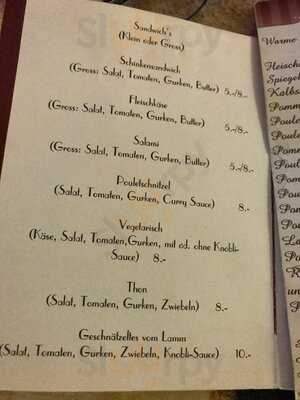 Sandwich's
(Klein oder Gross)
Schinkensandwich
(Gross: Salat, Tomaten, Gurken, Butter) 5.-/8.-
Fleischkäse
(Gross: Salat, Tomaten, Gurken, Butter) 5.-/8.-
Salami
(Gross: Salat, Tomaten, Gurken, Butter) 5.-/8.-
Pouletschnitzel
(Salat, Tomaten, Gurken, Curry Sauce) 8.-
Vegetarisch
(Käse, Salat, Tomaten,Gurken, mit od. ohne Knobli-
Sauce) 8.-
Thon
(Salat, Tomaten, Gurken, Zwiebeln) 8.-
Geschnätzeltes vom Lamm
(Salat, Tomaten, Gurken, Zwiebeln, Knobli-Sauce) 10.-
Warme